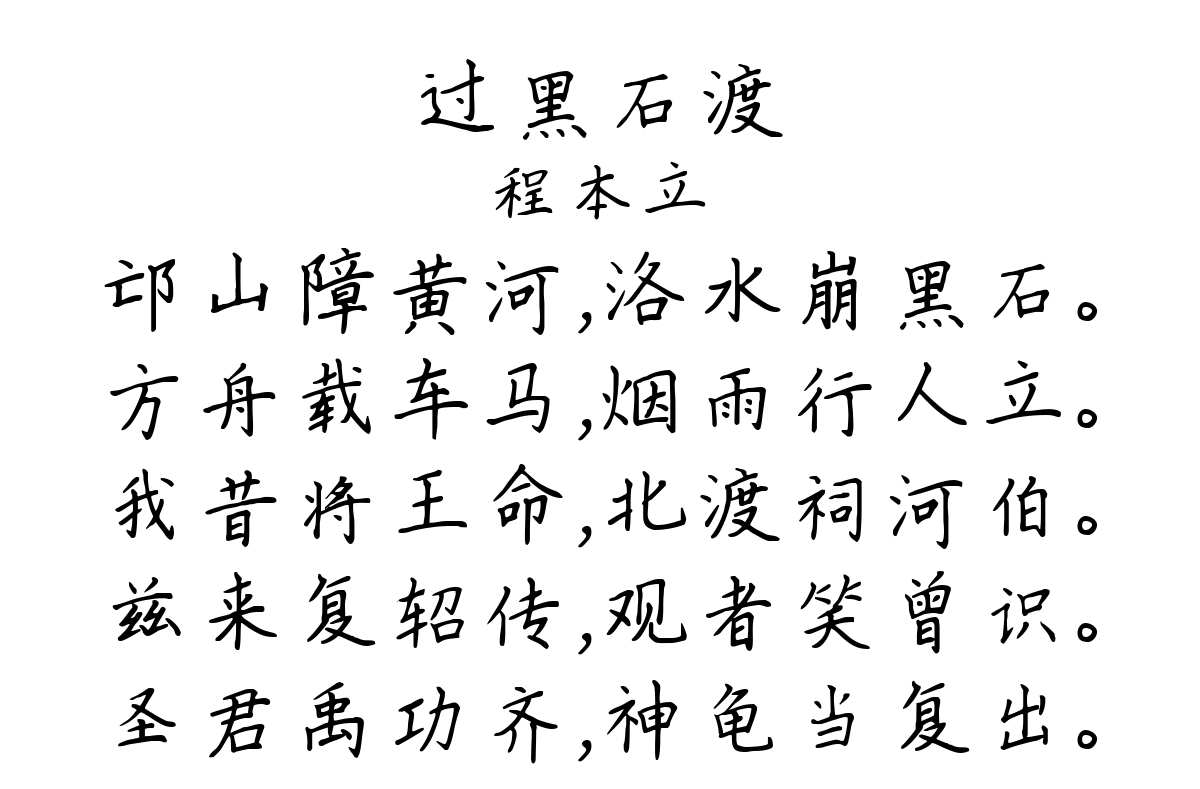 过黑石渡
程本立
邙山障黄河,洛水崩黑石。
方舟载车马,烟雨行人立。
我昔将王命,北渡祠河伯。
兹来复轺传,观者笑曾识。
圣君禹功齐,神龟当复出。